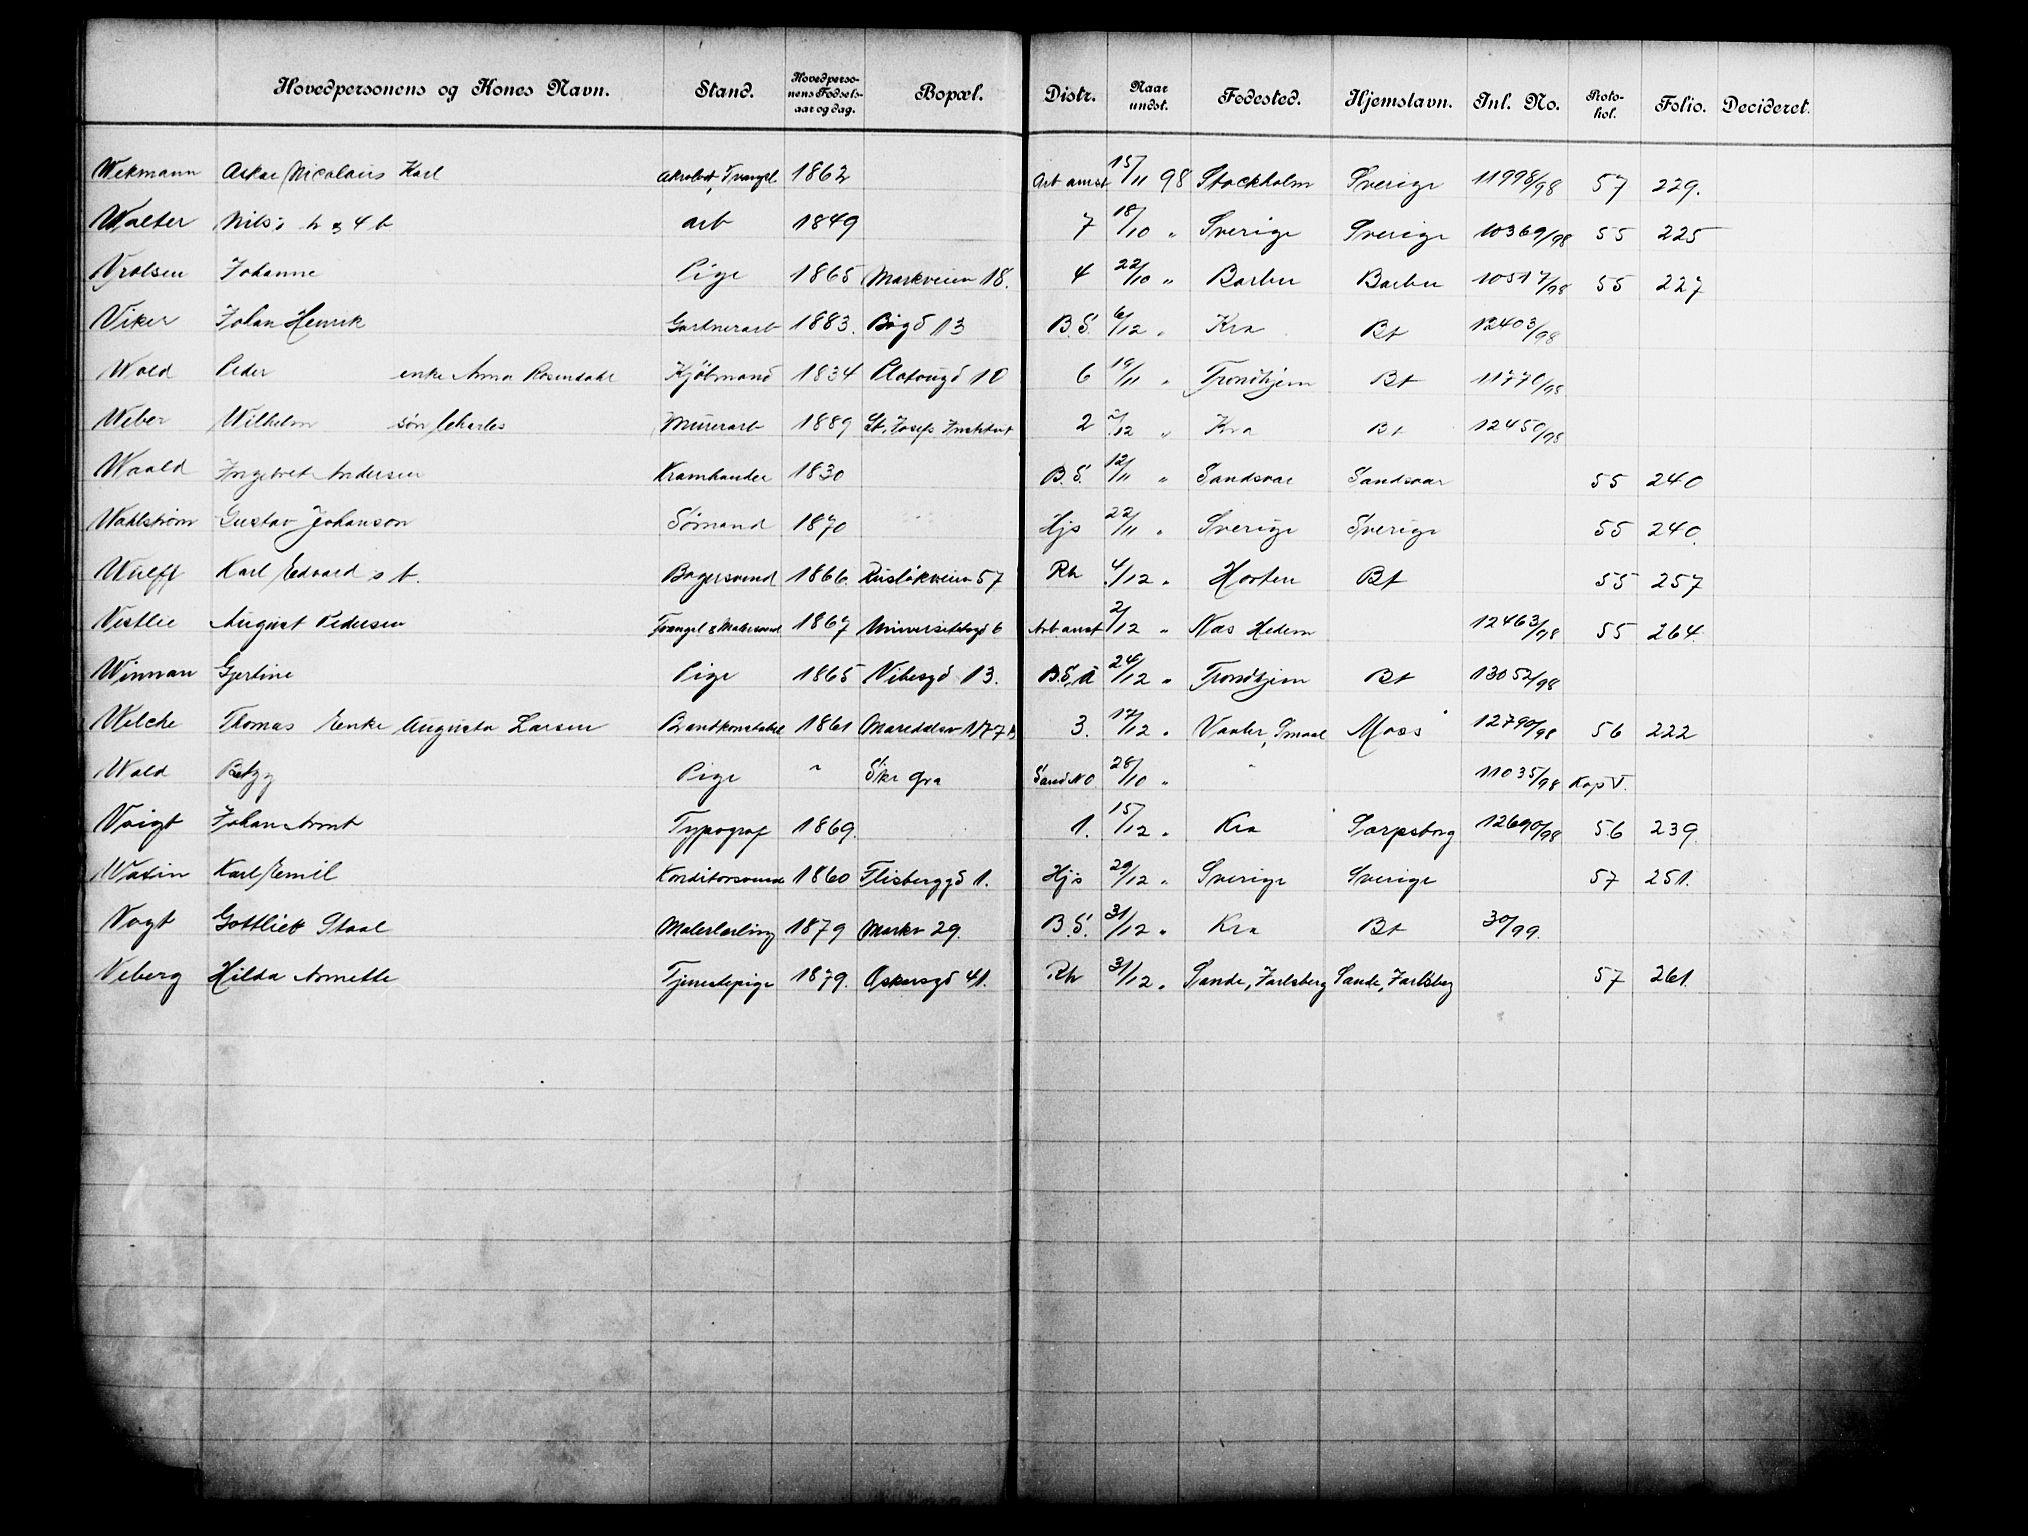 Hovedpersonens og Kones Navn. Stand. Hovedpersonens Fødselsaar og dag. Bopæl. Distr. Naar undst. Fødested. Hjemstavn. Inl. No. Protokol. Folio. Decideret.
Wekmann Askar Nicolaus Karl Akrobat, Tvangsl 1862 Arb anst 15/11 98 Stockholm Sverige 11998/98 57 229.
Walter Nils, h & 4 b arb 1849 7 18/10 " Sverige Sverige 10369/98 55 225
Vrolsen Johanne Pige 1865 Markveien 18. 4 22/10 " Barbu Barbu 10517/98 55 227
Viker Johan Henrik Gartnerarb 1883. Bogd 13 B.S. 6/12 " Kra Bt 12403/98
Wold Peder enke Anna Rosendahl Kjøbmand 1834 Platougd 10 6 19/11 " Trondhjem Bt 11770/98
Weber Wilhelm søn Charles Murerarb 1889 St. Josefs Institut 2 /12 " Kra Bt 12450/98
Waald Ingebret Andersen Kramhandler 1830 B.S. 12/11 " Sandsvær Sandsvær 55 240
Wahlstrøm Gustav Johanson Sømand 1870 Hjs 22/11 " Sverige Sverige 55 240.
Wulff Karl Edvard s b. Bagersvend 1866. Ruseløkveien 57 Rh 4/12 " Horten Bt 55 257
Vestlie August Pedersen Tvangsl & Malersvend 1867 Universitetsgd 6 Arb anst 2/12 " Næs Hedem 12463/98 55 264.
Winnan Gjertine Pige 1865 Vibesgd 13. B.S, A 24/12 " Trondhjem Bt 13052/98
Welche Thomas Enke Augusta Larsen Brandkonstabel 1861 Maridalsv 177 B 3. 17/12 " Vaaler, Smaal Moss 12790/98 56 222
Wold Betzy Pige " Skr gra Sand NO 28/10 " " 11035/98 Kop V.
Voigt Johan Arnt Typograf 1869. 1. 15/12 " Kra Sarpsborg 12690/98 56 239.
Watin Karl Emil Konditorsvend 1860 Flisberggd 1. Hjs 29/12 " Sverige Sverige 57 251.
Vogt Gottlieb Staal Malerlærling 1879 Markv 29. B.S. 31/12 " Kra Bt 30/99.
Veberg Hilda Annette Tjenestepige 1879. Oskarsgd 41. Rh 31/12 " Sande, Jarlsberg Sande, Jarlsberg 57 261.